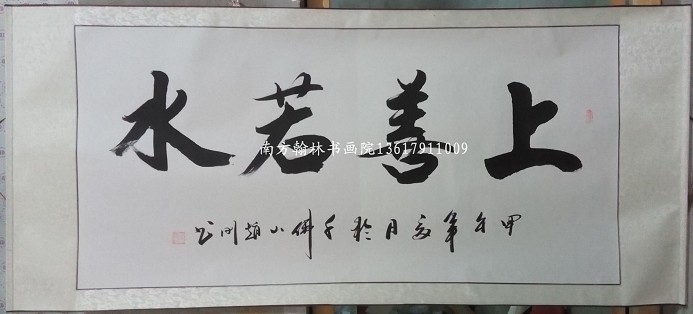 上善若水
南方翰林书画院13617911009
甲午年夏月於千佛山趙书